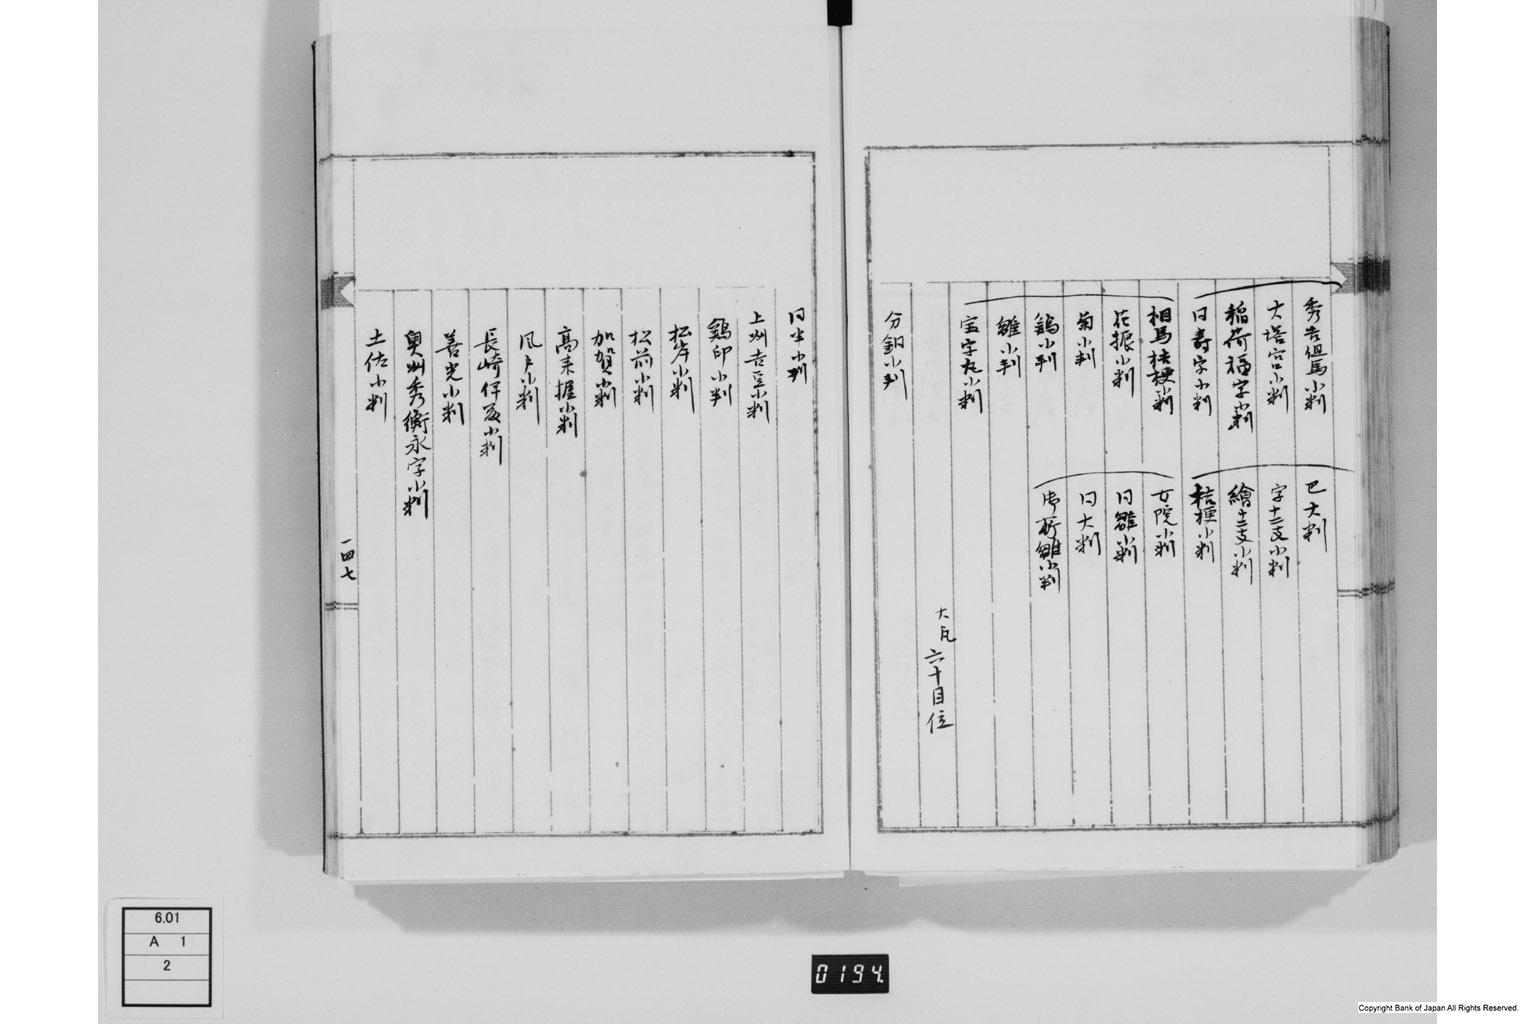 秀吉但馬小判
大塔宮小判
稲荷福字小判
日寿字小判
相馬桔梗小判
花振小判
菊小判
鶏小判
雛小判
宝字丸小判
巴大判
字十二支小判
繪十二支小判
桔梗小判
女院小判
日雛小判
日大判
御所雛小判
大凡 六十目位
分銅小判
日半小判
上州吉小判
鶏印小判
松岸小判
松前小判
加賀小判
高来握小判
小判
長崎小判
善光小判
奥州秀衡永字小判
土佐小判
一四七
6.01
A 1
2
0194
Copyright Bank of Japan All Rights Reserved.